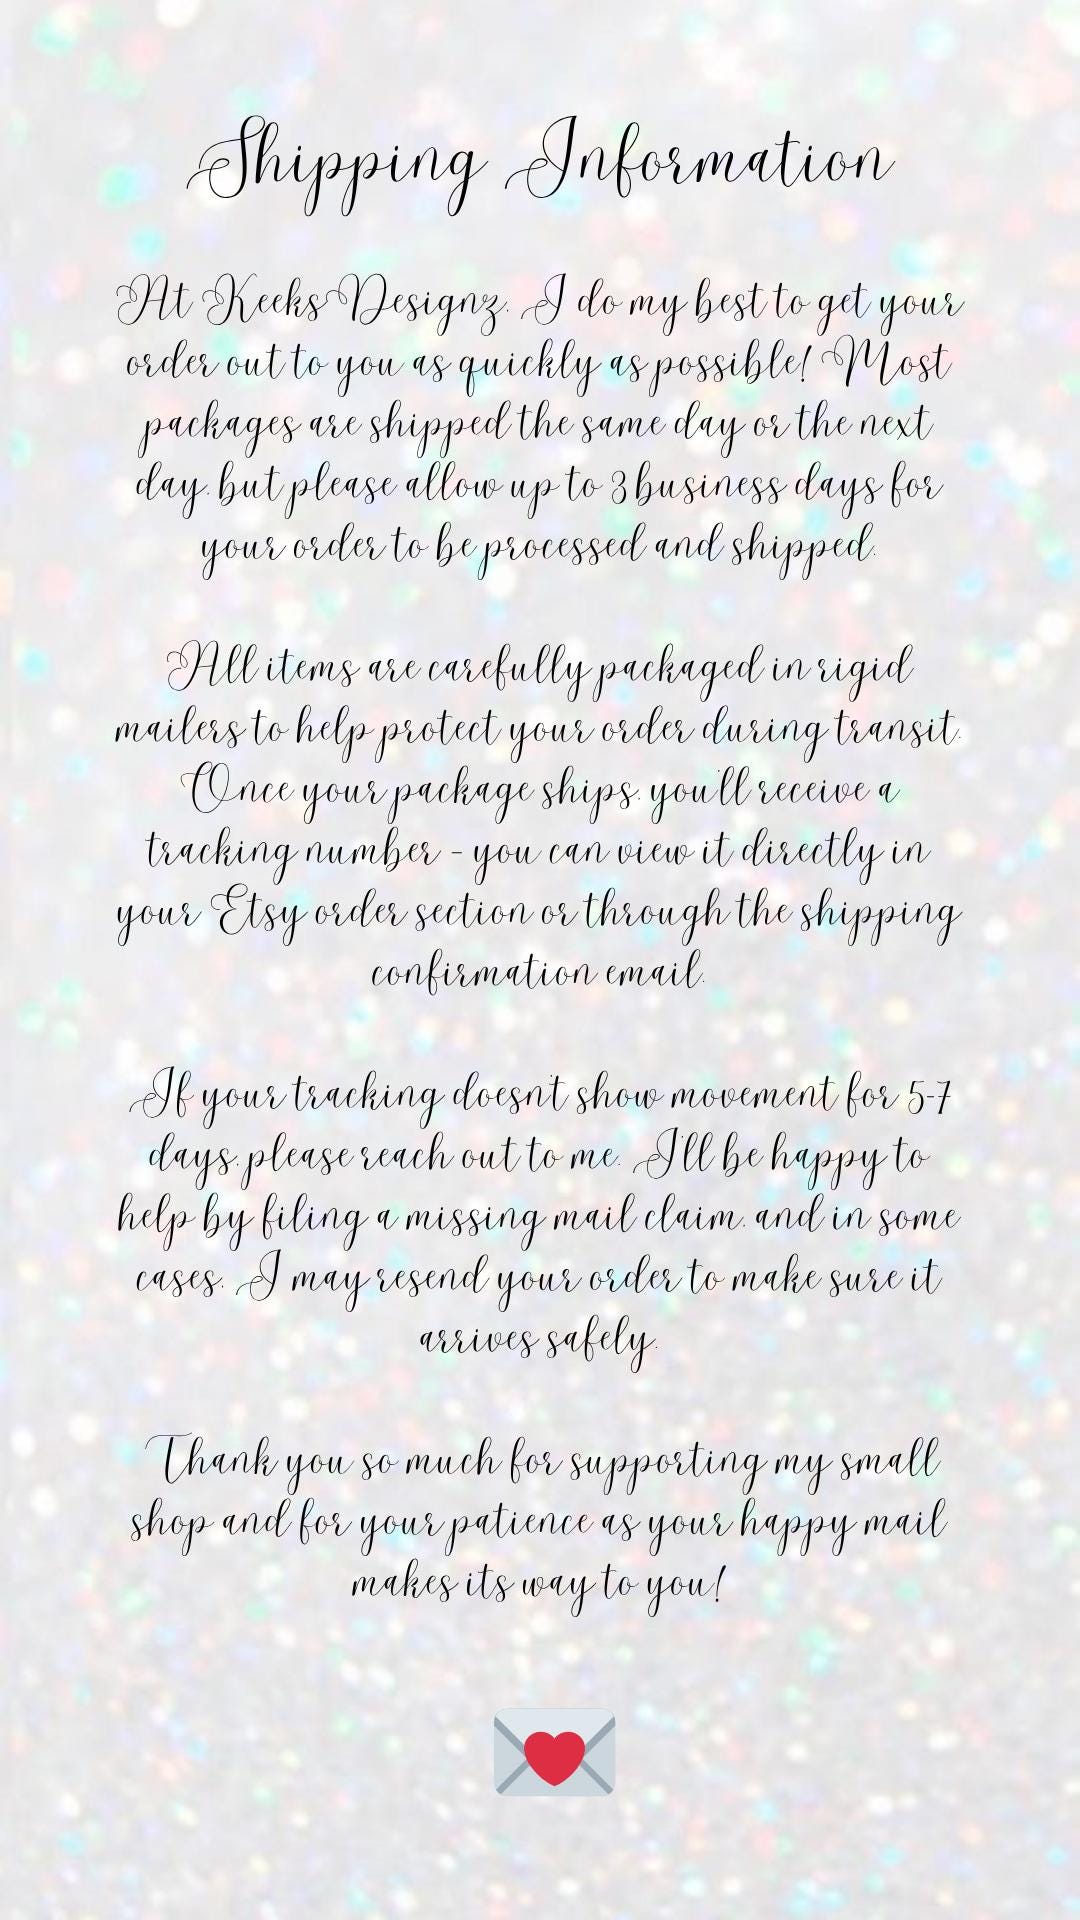 Shipping Information
At KeeksDesignz, I do my best to get your
order out to you as quickly as possible! Most
packages are shipped the same day or the next
day, but please allow up to 3 business days for
your order to be processed and shipped.
All items are carefully packaged in rigid
mailers to help protect your order during transit.
Once your package ships, you'll receive a
tracking number - you can view it directly in
your Etsy order section or through the shipping
confirmation email.
If your tracking doesn't show movement for 5-7
days, please reach out to me. I'll be happy to
help by filing a missing mail claim, and in some
cases, I may resend your order to make sure it
arrives safely.
Thank you so much for supporting my small
shop and for your patience as your happy mail
makes its way to you!